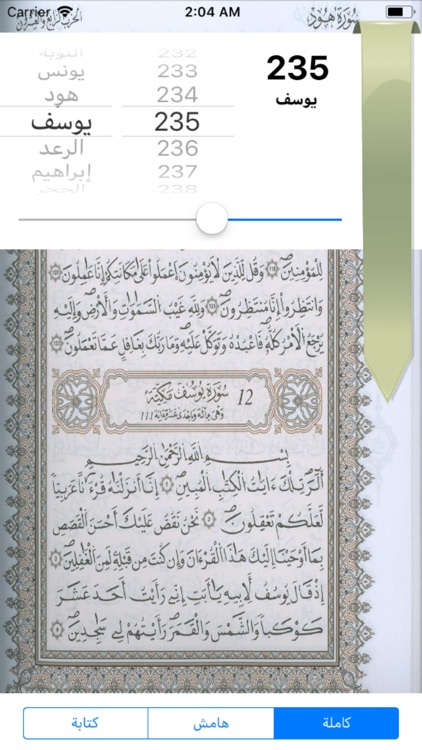 Carrier 2:04 AM
الحزب الرابع والعشرون
سورة هود
التوبة 232
يونس 233
هود 234
يوسف 235
الرعد 236
إبراهيم 237
الحجر 238
235
يوسف
للمومنين وقل للذين لا يومنون اعملوا على مكانتكم إنا عاملون
وانتظروا إنا منتظرون ولله غيب السموات والأرض وإليه
يرجع الأمر كله فاعبده وتوكل عليه وما ربك بغافل عما تعملون
12 سورة يوسف مكية
وهي مائة وإحدى عشرة آية 111
بسم الله الرحمن الرحيم
ألر تلك ءايات الكتب المبين إنا أنزلنه قرءنا عربيا
لعلكم تعقلون نحن نقص عليك أحسن القصص
بما أوحينا إليك هذا القرءان وإن كنت من قبله لمن الغفلين
إذ قال يوسف لأبيه يأبت إني رأيت أحد عشر
كوكبا والشمس والقمر رأيتهم لي سجدين
كتابة هامش كاملة